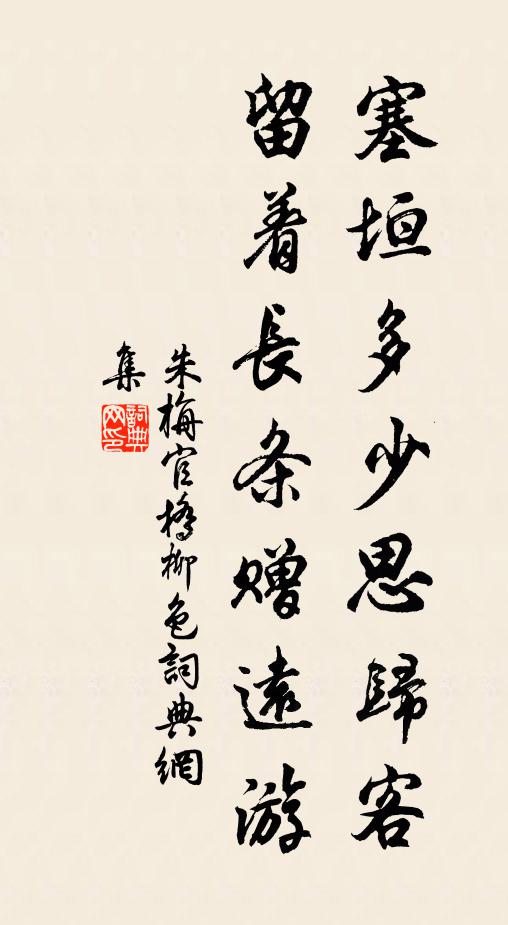 塞垣多少思歸客
留着長条贈遠游
朱梅官橋柳色詞典網
集
詞典网印